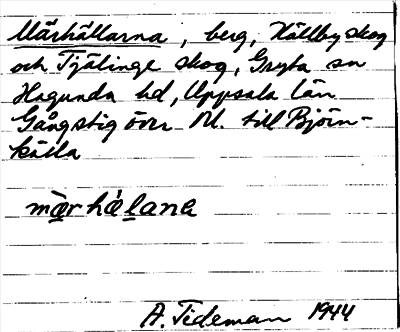 Märhällarna, berg, Hällby skog
och Tjälinge skog, Gryta sn
Hagunda hd, Uppsala län
Gångstig över M. till Björn-
källa
mä̀r hä́lana
A. Tideman 1944